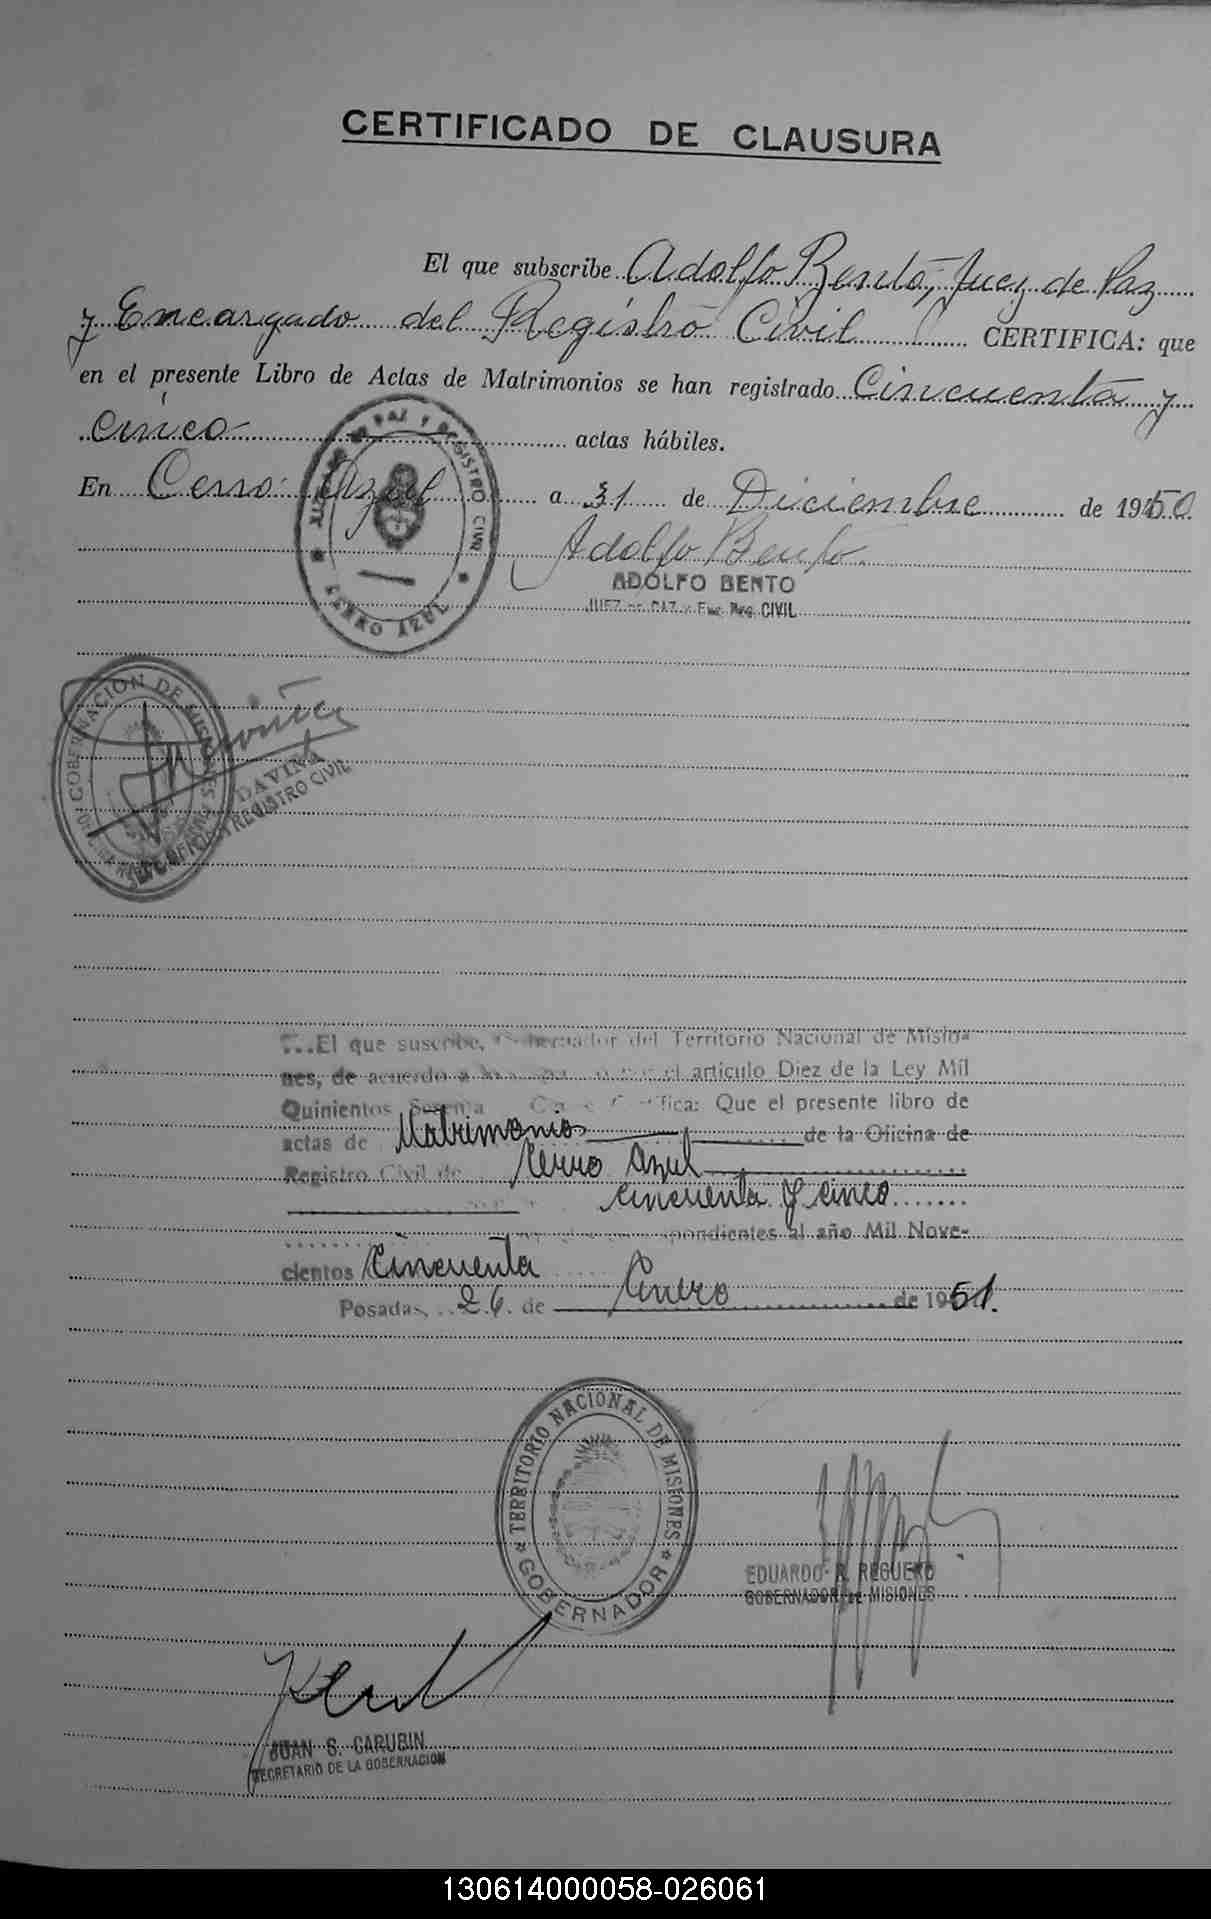 CERTIFICADO DE CLAUSURA
El que subscribe Adolfo Bento, Juez de Paz
y Encargado del Registro Civil CERTIFICA: que
en el presente Libro de Actas de Matrimonios se han registrado Cincuenta y
cinco actas hábiles.
En Cerro Azul a 31 de Diciembre de 1950
Adolfo Bento
ADOLFO BENTO
JUEZ DE PAZ y Enc. Reg. CIVIL
PAZ Y REGISTRO CIVIL
CERRO AZUL
GOBERNACION DE MISIONES
DAVIÑA
REGISTRO CIVIL
El que suscribe, Gobernador del Territorio Nacional de Misio-
nes, de acuerdo a el artículo Diez de la Ley Mil
Quinientos Certifica: Que el presente libro de
actas de Matrimonios de la Oficina de
Registro Civil de Cerro Azul
cincuenta y cinco
al año Mil Nove-
cientos Cincuenta
Posadas, 26 de Enero de 1951.
TERRITORIO NACIONAL DE MISIONES
GOBERNADOR
EDUARDO A. REGUERO
GOBERNADOR DE MISIONES
JUAN S. CARUBIN
SECRETARIO DE LA GOBERNACION
130614000058-026061